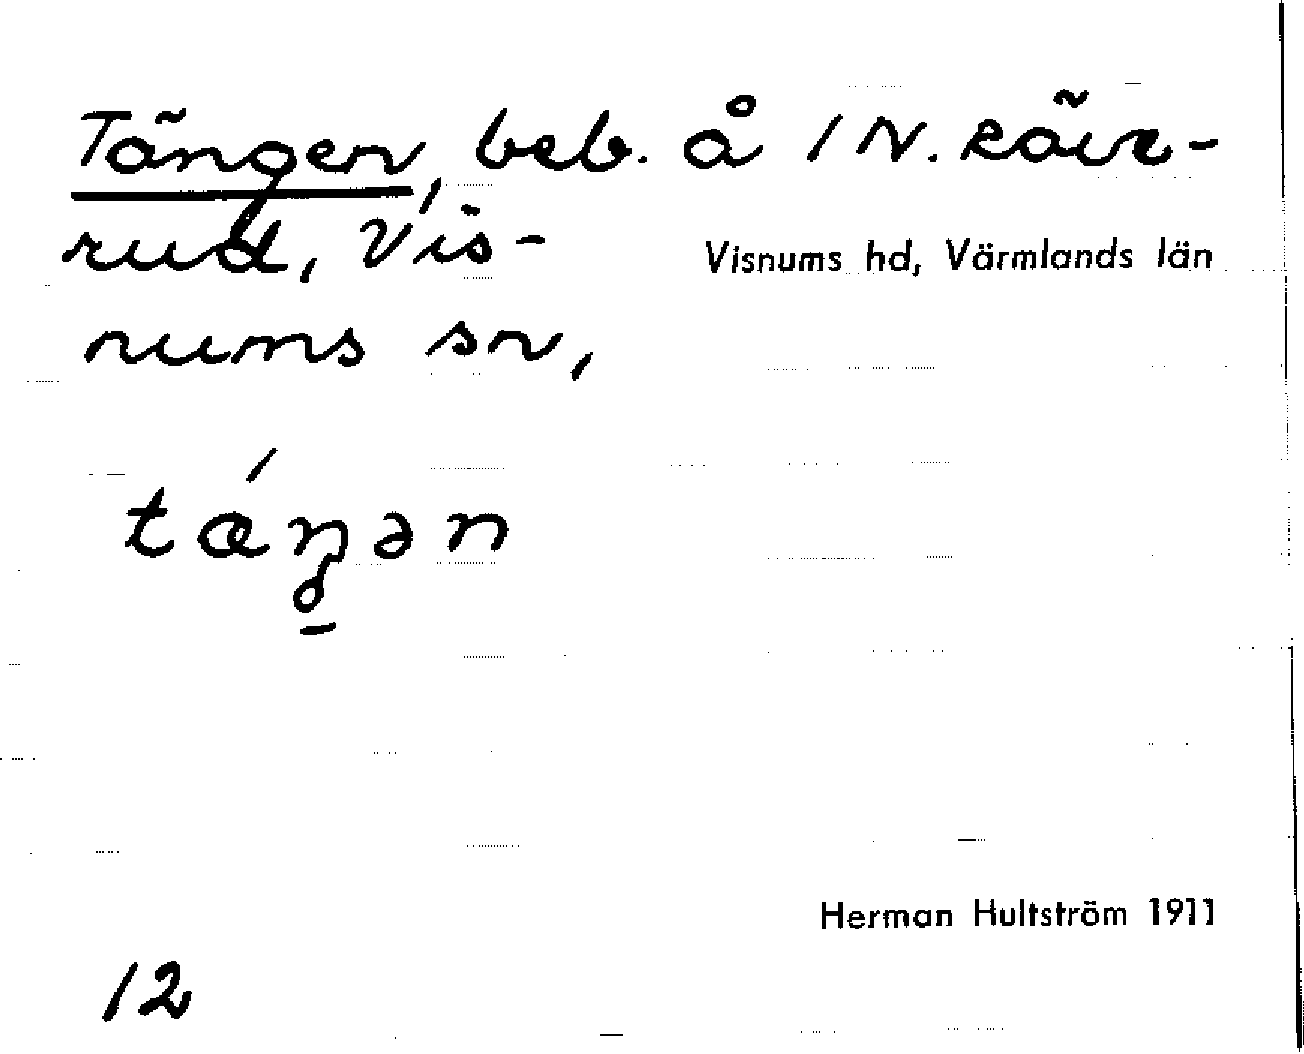 Tängen, beb. å 1 N. Räve-
rud, Vis-
Visnums hd, Värmlands län
nums sn,
Herman Hultström 1911
12